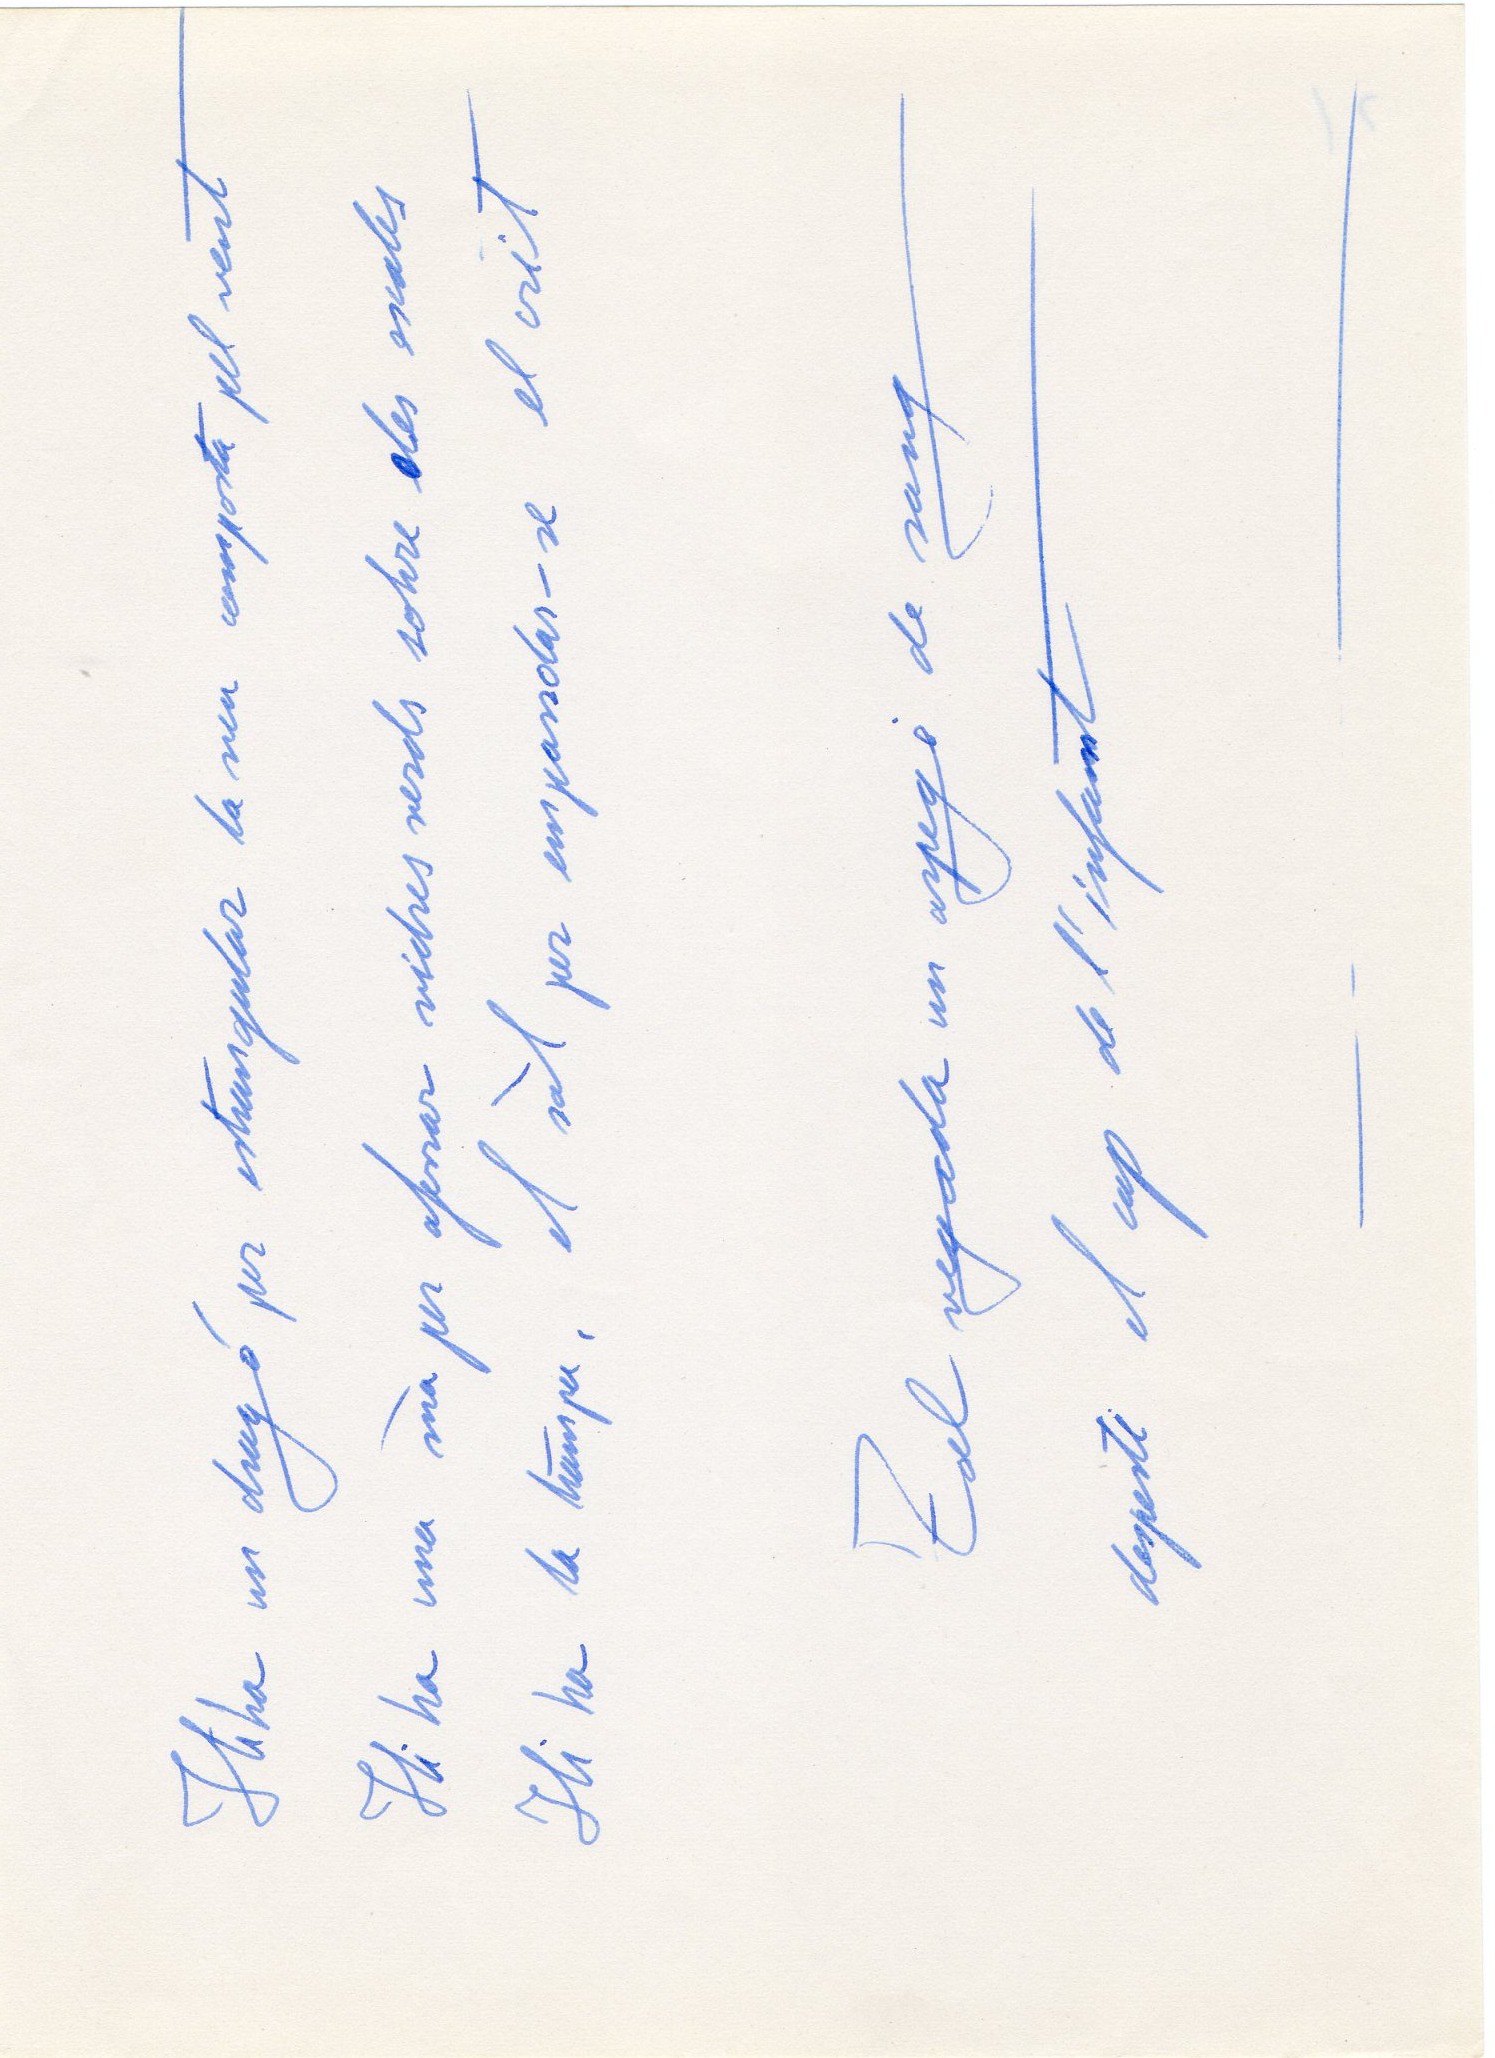 Hi ha un dragó per estrangular la neu composta pel vent
Hi ha una mà per aferrar vidres verds sobre les escales
Hi ha la trampa, el sàl per empardas-se el crit
I del vegada un arpegi de sang
desperti el cap de l'infant